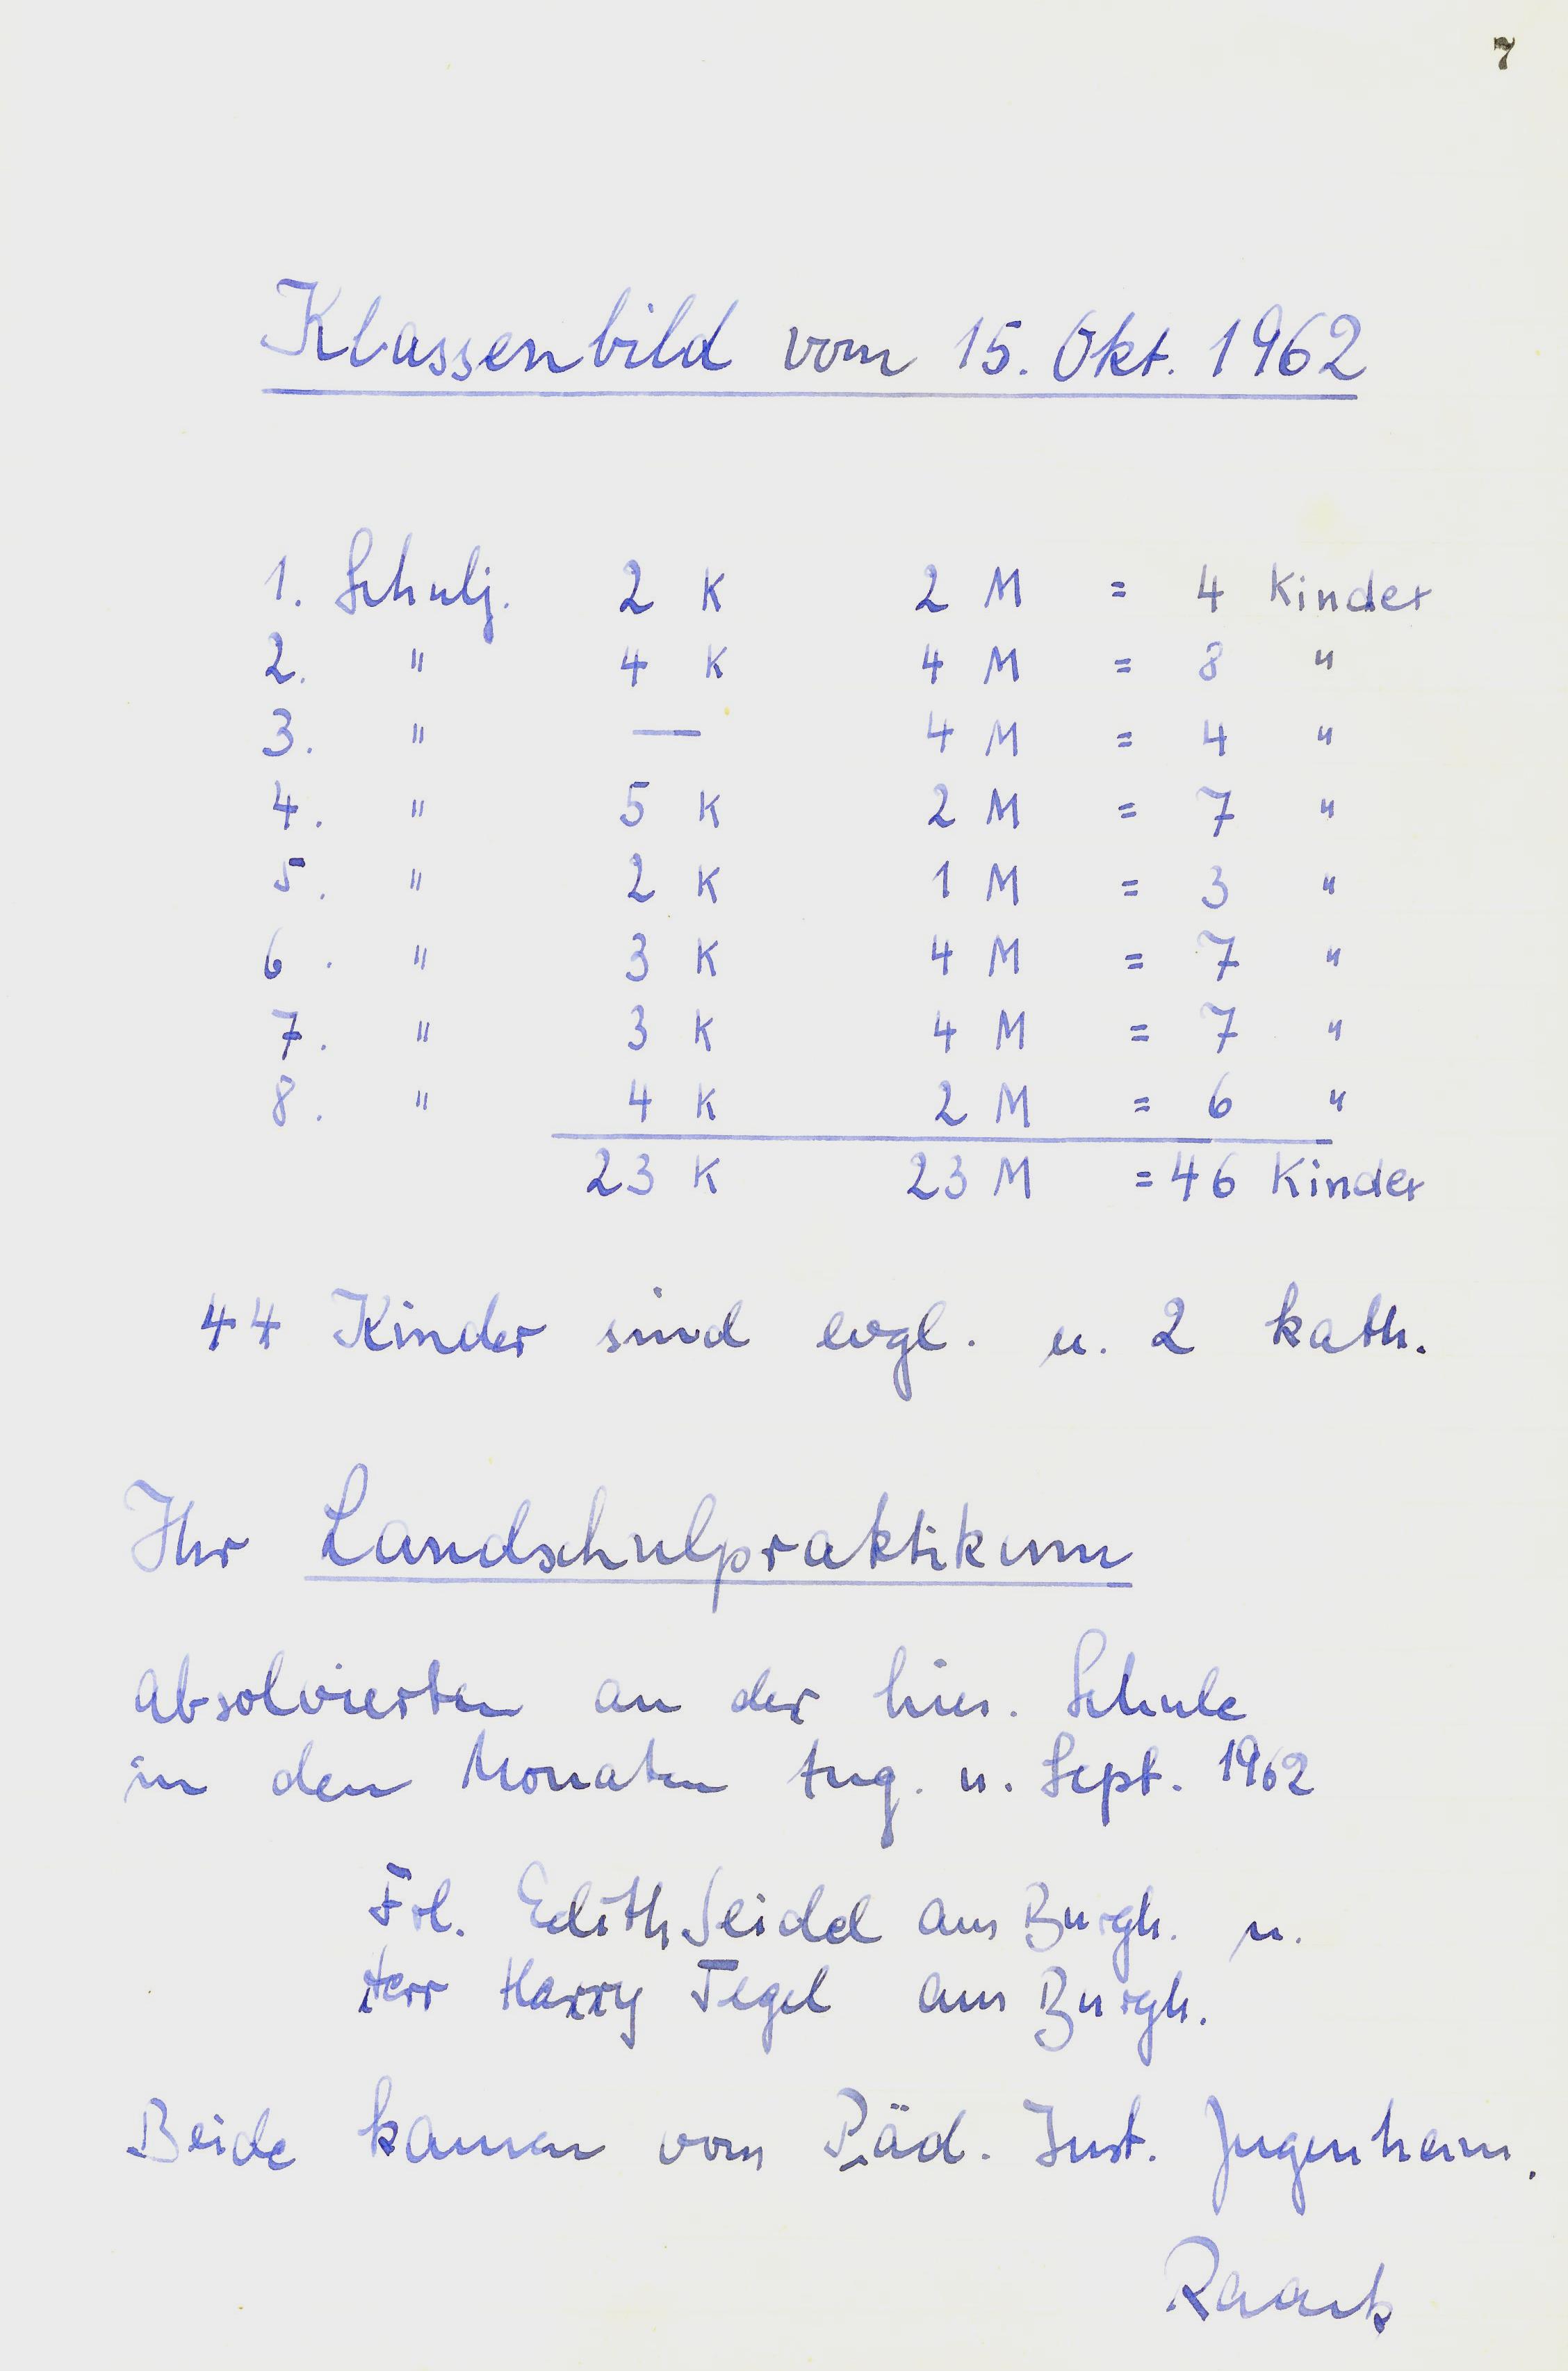 7
Klassenbild vom 15. Okt. 1962
1. Schulj. 2 K 2 M = 4 Kinder
2. " 4 K 4 M = 8 "
3. " — 4 M = 4 "
4. " 5 K 2 M = 7 "
5. " 2 K 1 M = 3 "
6. " 3 K 4 M = 7 "
7. " 3 K 4 M = 7 "
8. " 4 K 2 M = 6 "
23 K 23 M = 46 Kinder
44 Kinder sind evgl. u. 2 kath.
Ihr Landschulpraktikum
absolvierten an der hies. Schule
in den Monaten Aug. u. Sept. 1962
Frl. Edith Seidel aus Burgh. u.
Herr Harry Tegel aus Burgh.
Beide kamen vom Päd. Inst. Jugenheim.